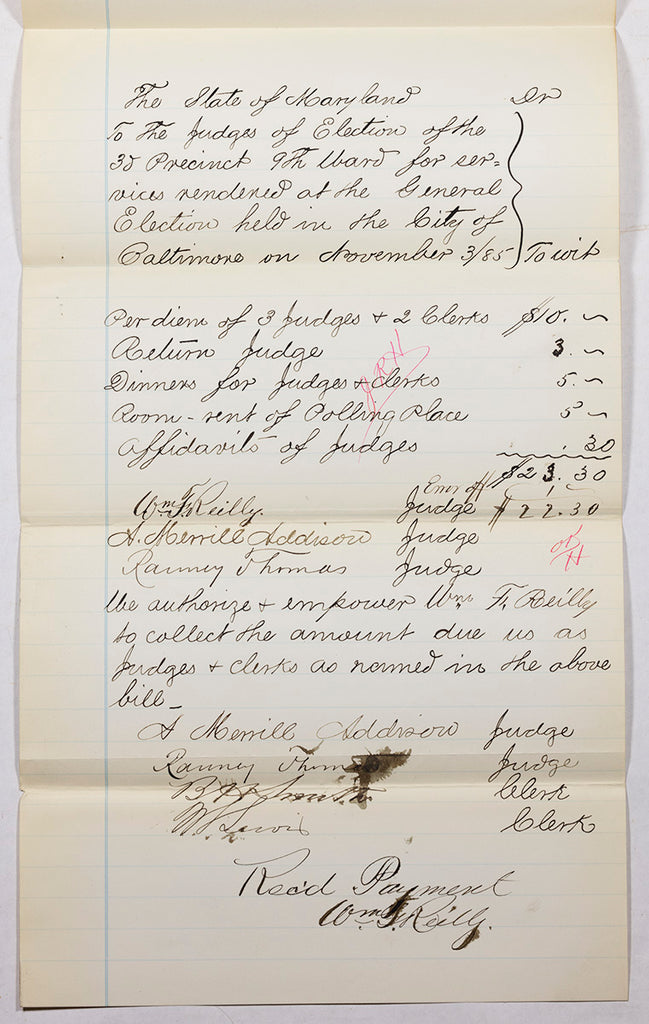 The State of Maryland Dr
To the Judges of Election of the
3d Precinct 9th Ward for ser=
vices rendered at the General
Election held in the City of
Baltimore on November 3/85 To wit
Per diem of 3 Judges + 2 Clerks $10. ~
Return Judge 3. ~
Dinners for Judges + Clerks 5. ~
Room-rent of Polling Place 5 ~
Affidavits of Judges .30
$23.30
Error off
Wm F. Reilly. Judge $22.30
A. Merrill Addison Judge
Ranney Thomas Judge
We authorize + empower Wm F. Reilly
to collect the amount due us as
Judges + Clerks as named in the above
bill_
A Merrill Addison Judge
Ranney Thomas Judge
B H Smith Clerk
W. Lewis Clerk
Rec'd Payment
Wm F. Reilly.